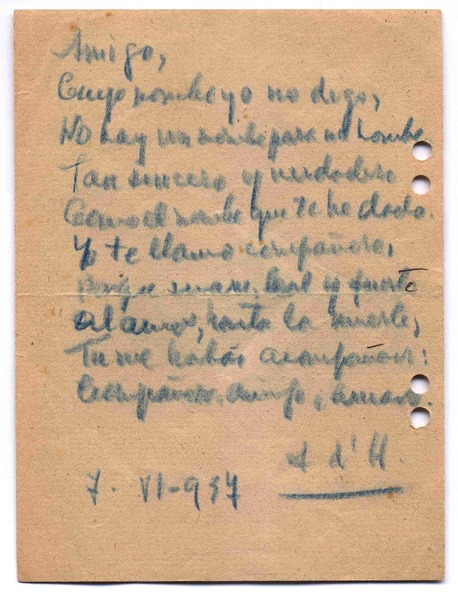 Amigo,
Cuyo nombre yo no digo,
No hay un nombre para un hombre
Tan sincero y verdadero
Como el nombre que te he dado.
Yo te llamo compañero,
Porque suave, leal y fuerte
al amor, hasta la muerte,
Tu me habás acompañado:
Compañero, amigo, amado.
A d'H.
7. VI-937